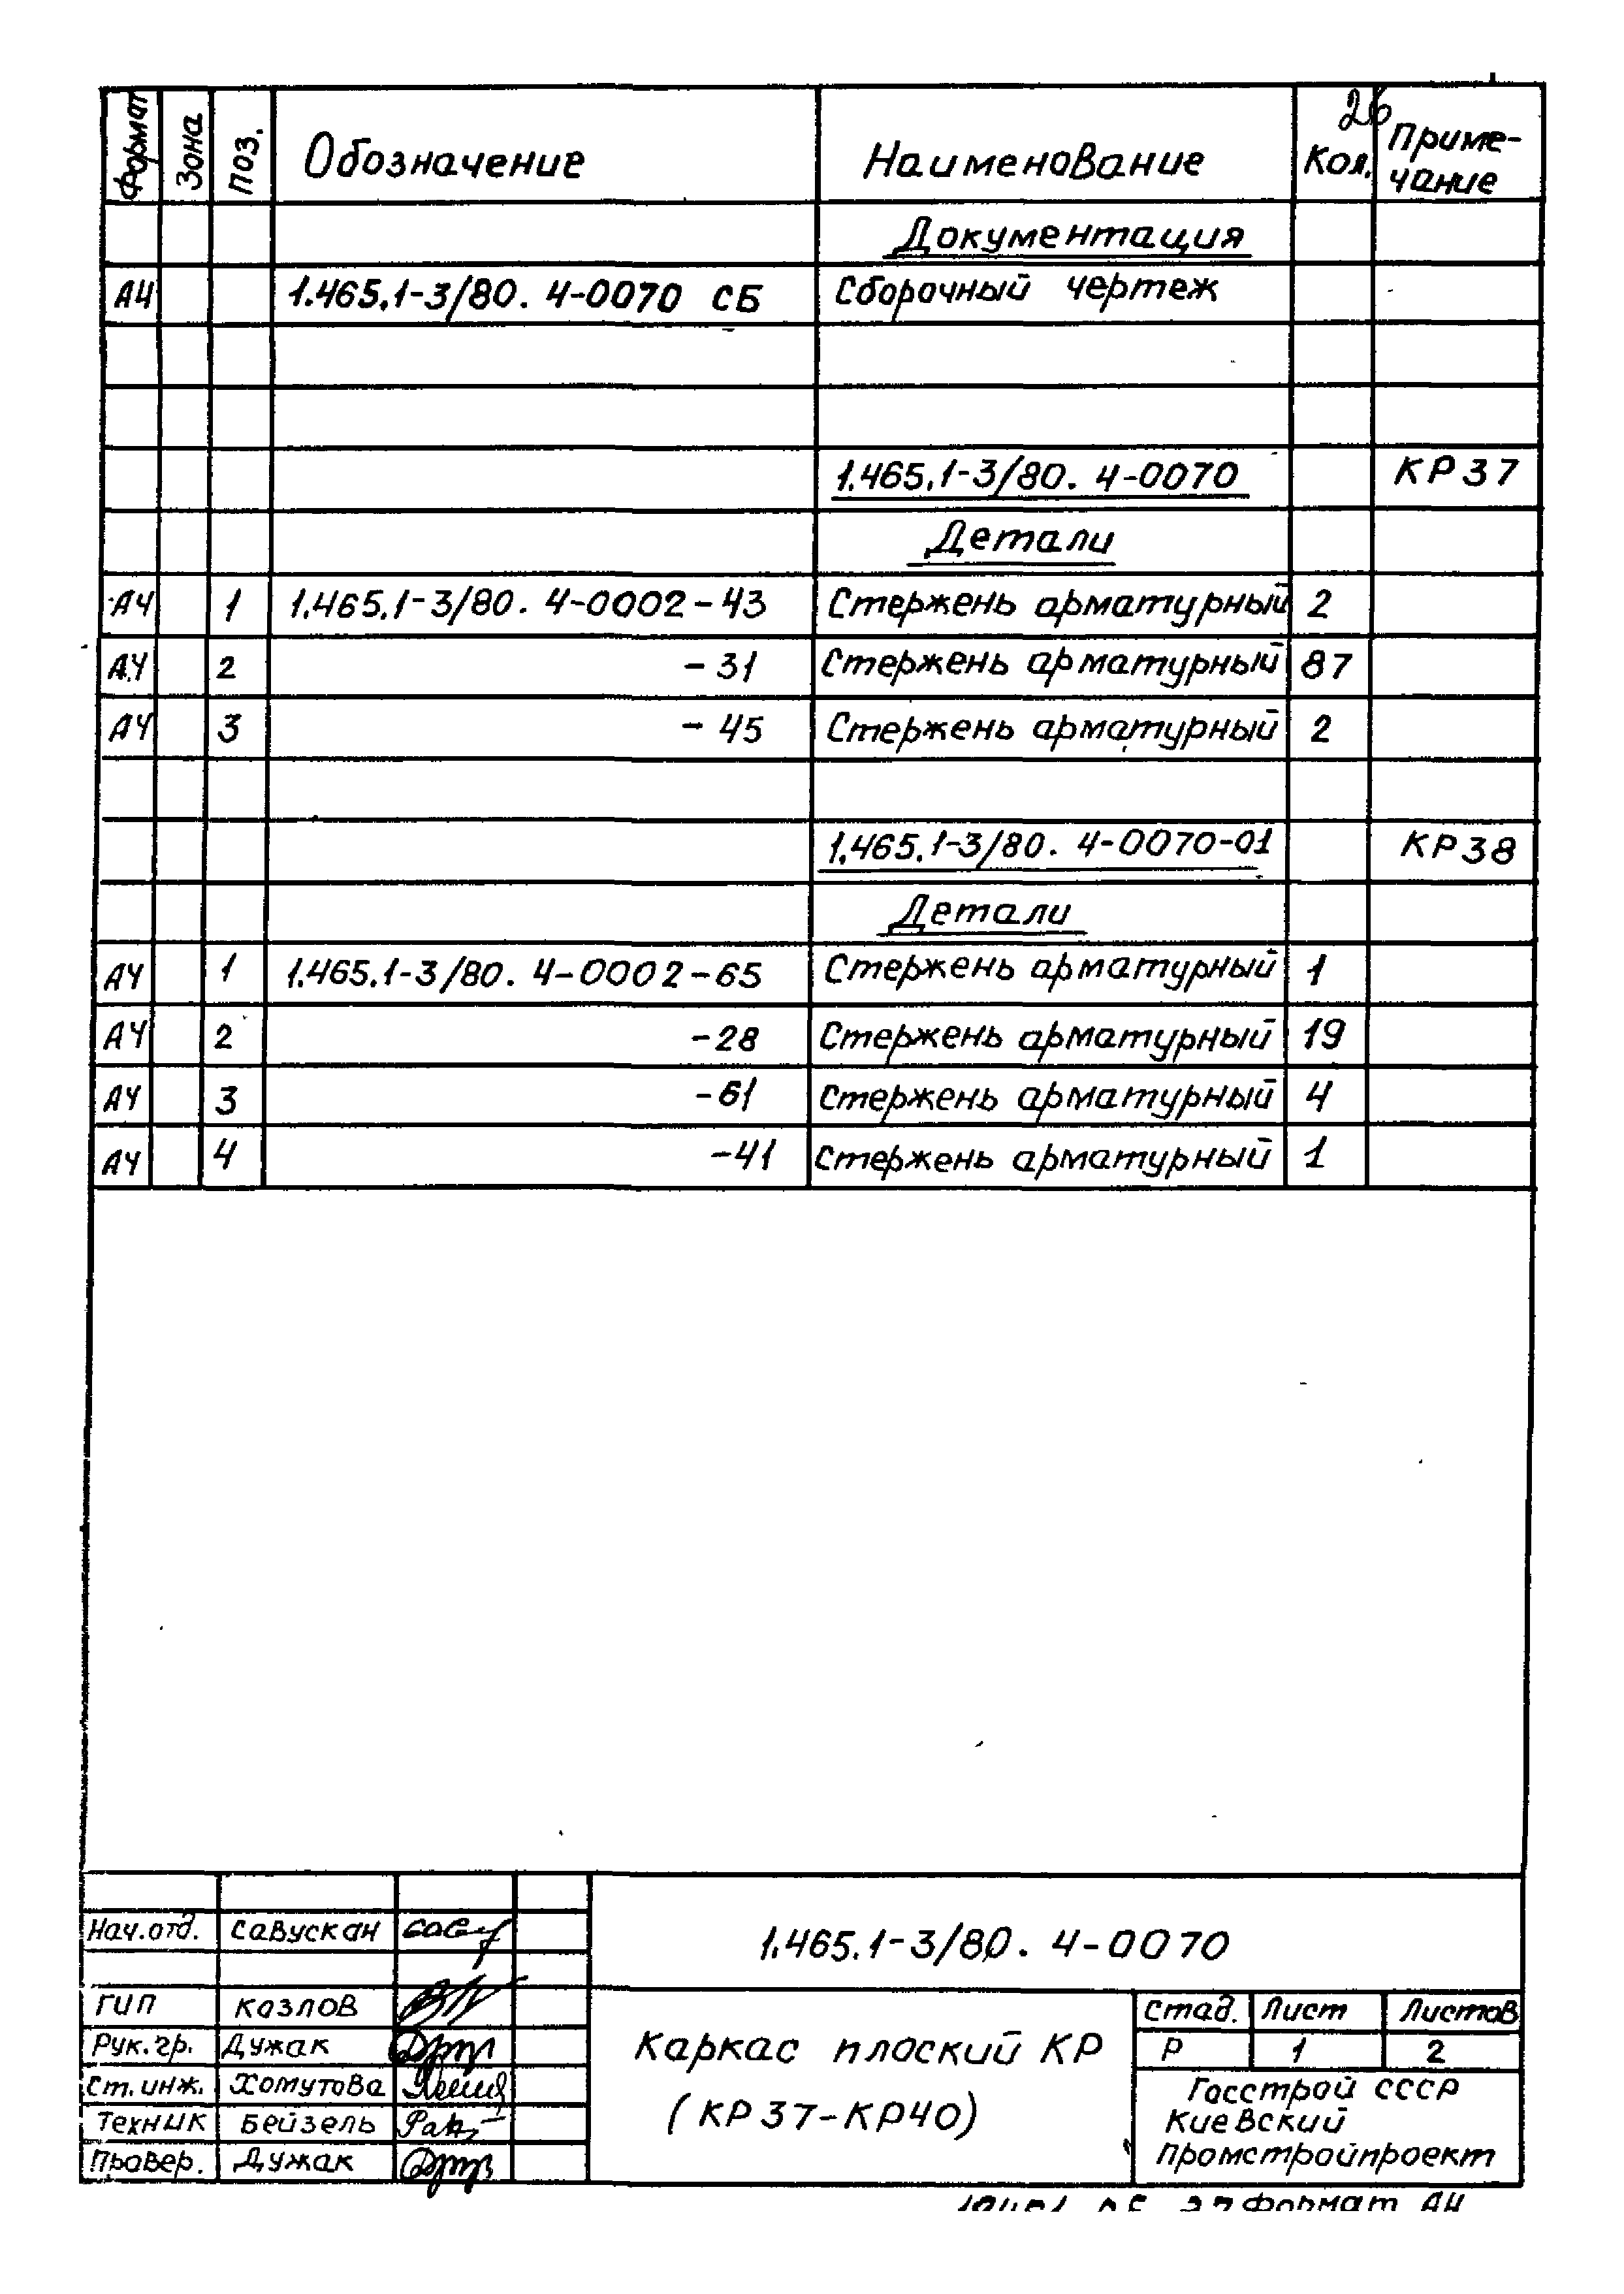 26
Формат Зона Поз. Обозначение Наименование Кол. Приме-
чание
Документация
А4 1.465.1-3/80. 4-0070 СБ Сборочный чертеж
1.465.1-3/80. 4-0070 КР37
Детали
А4 1 1.465.1-3/80. 4-0002-43 Стержень арматурный 2
А4 2 -31 Стержень арматурный 87
А4 3 -45 Стержень арматурный 2
1.465.1-3/80. 4-0070-01 КР38
Детали
А4 1 1.465.1-3/80. 4-0002-65 Стержень арматурный 1
А4 2 -28 Стержень арматурный 19
А4 3 -61 Стержень арматурный 4
А4 4 -41 Стержень арматурный 1
Нач.отд. Савускан
ГИП Козлов
Рук.гр. Дужак
Ст.инж. Хомутова
Техник Бейзель
Провер. Дужак
1.465.1-3/80. 4-0070
Каркас плоский КР
(КР37-КР40)
Стад. Лист Листов
Р 1 2
Госстрой СССР
Киевский
Промстройпроект
формат А4